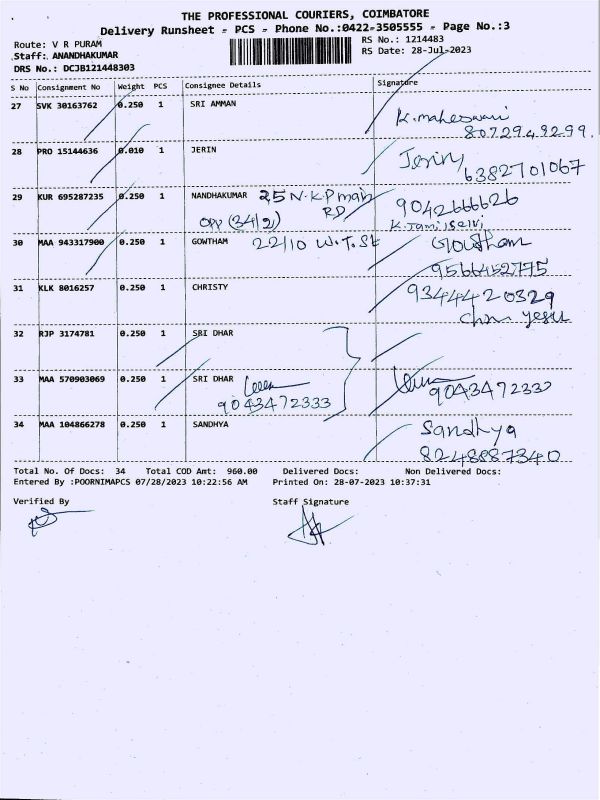 THE PROFESSIONAL COURIERS, COIMBATORE
Delivery Runsheet - PCS - Phone No.:0422-3505555 - Page No.:3
Route: V R PURAM
RS No.: 1214483
Staff: ANANDHAKUMAR
RS Date: 28-Jul-2023
DRS No.: DCJB121448303
S No Consignment No Weight PCS Consignee Details Signature
27 SVK 30163762 0.250 1 SRI AMMAN
K. maheswari
8072949299.
28 PRO 15144636 0.010 1 JERIN Jerin
6382701067
29 KUR 695287235 0.250 1 NANDHAKUMAR 25 N.K.P main 9042666626
RD
opp (34/2) K. Tamilselvi
30 MAA 943317900 0.250 1 GOWTHAM 22/10 W.T.St Gowtham
9566452775
31 KLK 8016257 0.250 1 CHRISTY 9344420329
yesu
32 RJP 3174781 0.250 1 SRI DHAR
33 MAA 570903069 0.250 1 SRI DHAR
9043472333 9043472333
34 MAA 104866278 0.250 1 SANDHYA Sandhya
8248887340
Total No. Of Docs: 34 Total COD Amt: 960.00 Delivered Docs: Non Delivered Docs:
Entered By :POORNIMAPCS 07/28/2023 10:22:56 AM Printed On: 28-07-2023 10:37:31
Verified By Staff Signature